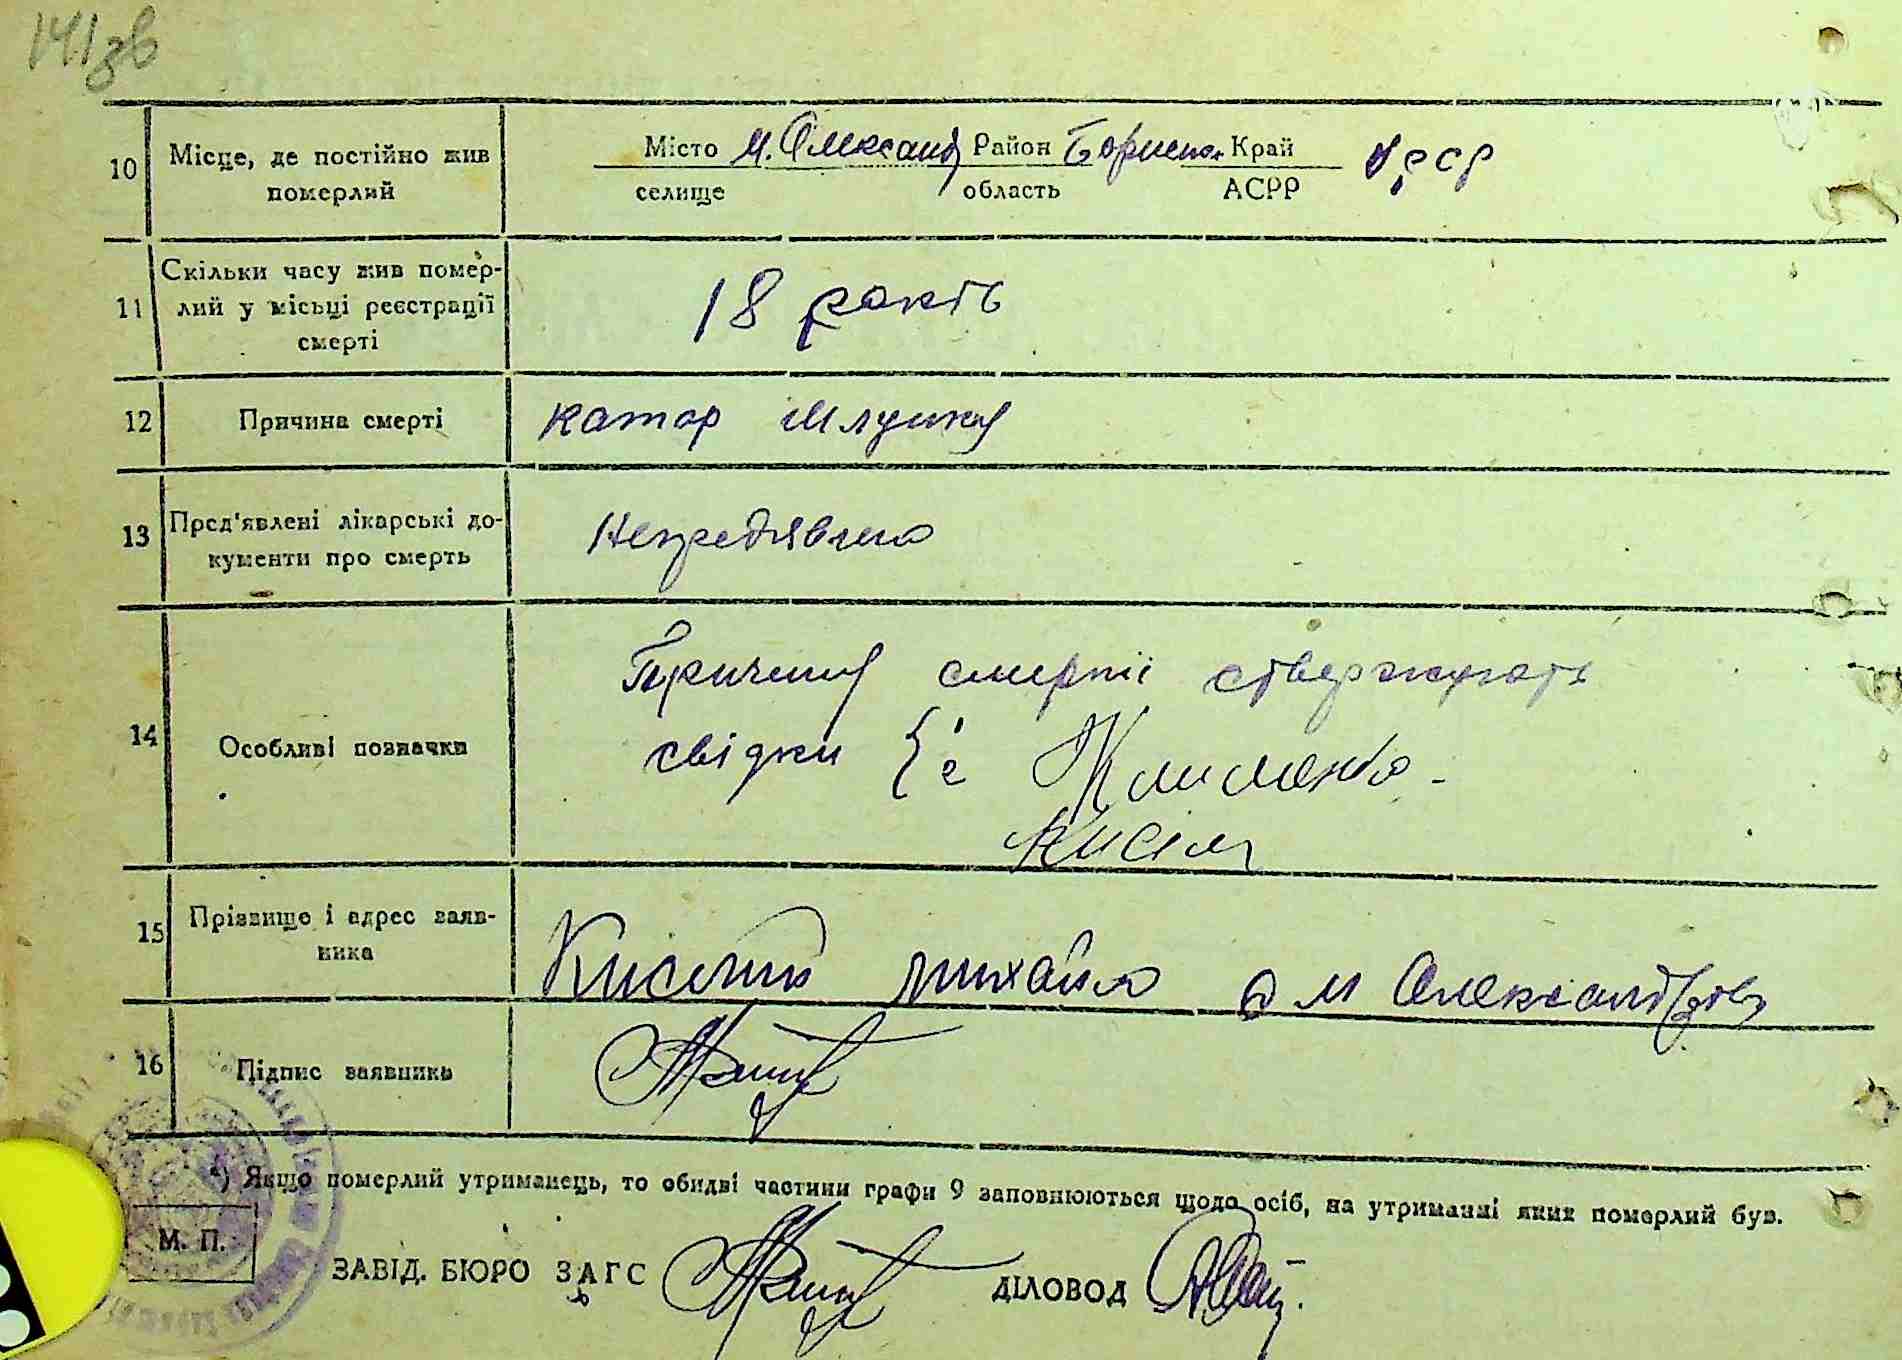 141зв
10 Місце, де постійно жив померлий
Місто М. Олександ Район Бориспол Край УРСР
селище область АСРР
11 Скільки часу жив помер-
лий у місьці реєстрації
смерті
18 років
12 Причина смерті
катар шлунку
13 Пред'явлені лікарські до-
кументи про смерть
Непредявлено
14 Особливі позначки
Причину смерті ствержують
свідки { Клименко
Кисіль
15 Прізвище і адрес заяв-
ника
Михайло М Олександрівк
16 Підпис заявника
*) Якщо померлий утриманець, то обидві частини графи 9 заповнюються щодо осіб, на утриманні яких померлий був.
М. П.
ЗАВІД. БЮРО ЗАГС
ДІЛОВОД